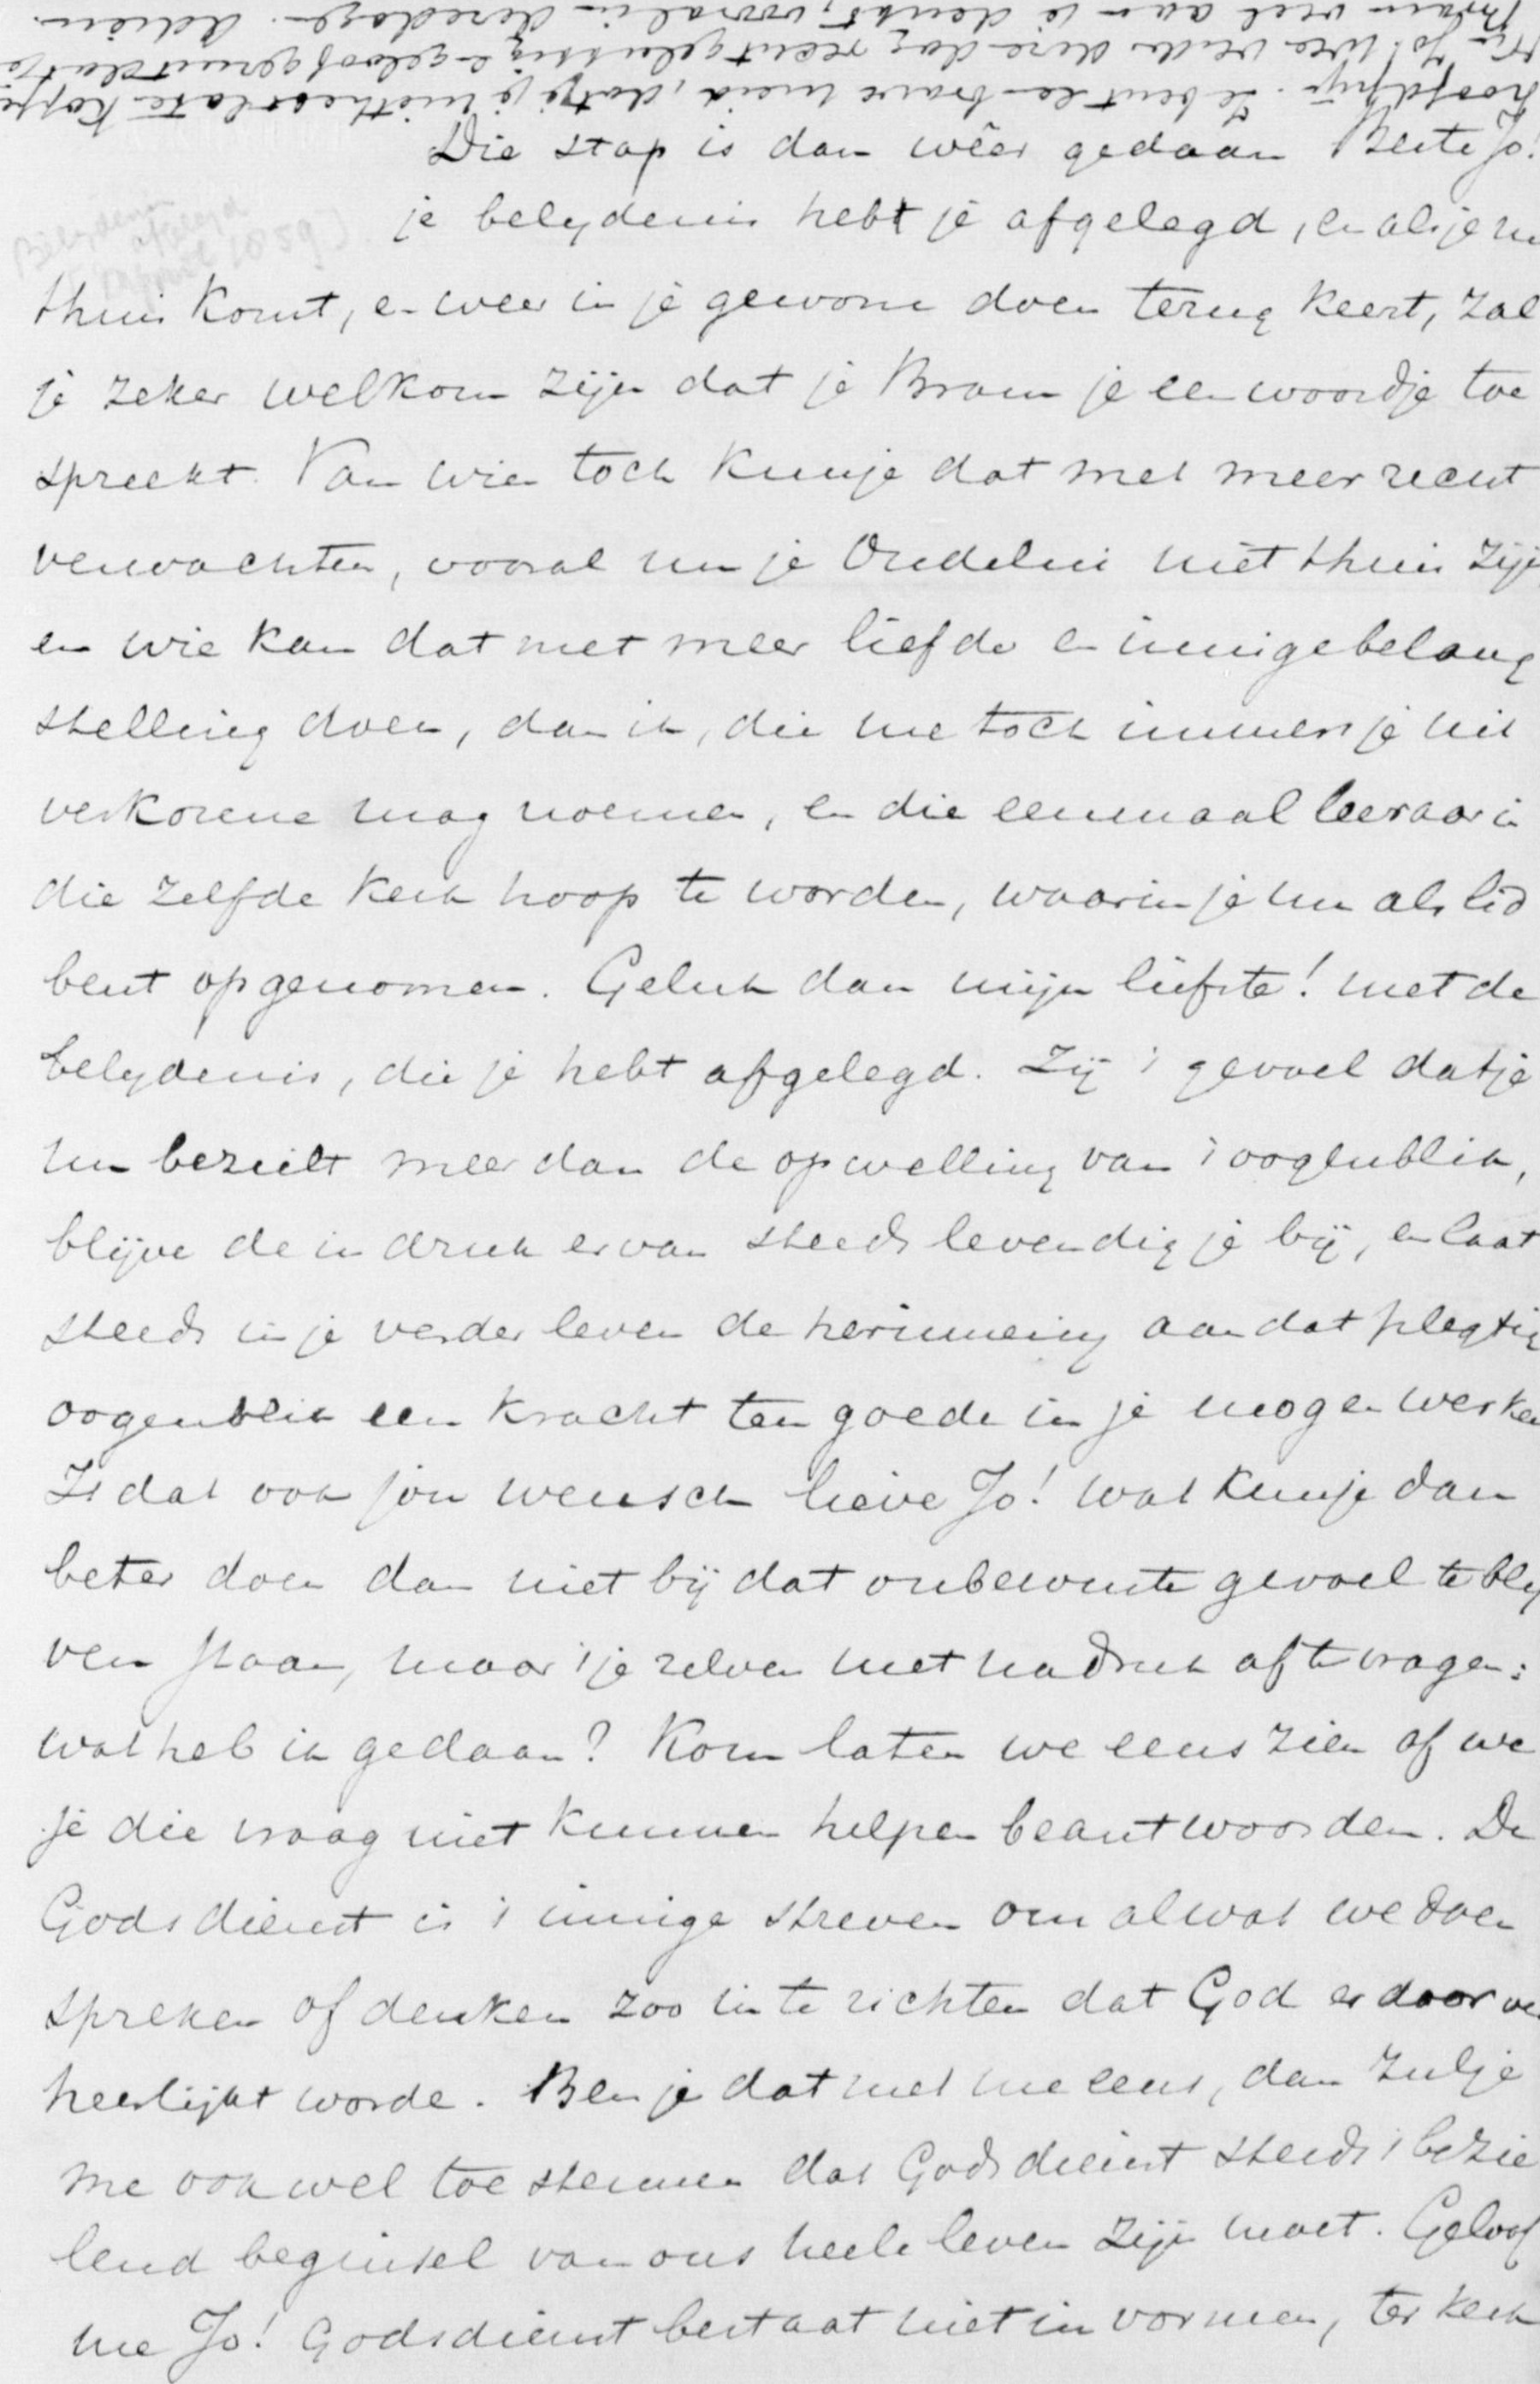 hoofdpijn. Je bent een brave meid, dat je je niet heerlate kopje
Nu Jo! wees verder deze dag recht gelukkig en geloof gerust dat je
Bram veel aan je denkt, vooral in deze dagen. Adieu.
Die stap is dan wêer gedaan Beste Jo!
je belydenis hebt je afgelegd, en als je nu
Belydenis
afgelegd
April 1859)
thuis komt, en weer in je gewone doen terug keert, zal
je zeker welkom zijn dat je Bram je een woordje toe
spreekt. Van wien toch kun je dat met meer recht
verwachten, vooral nu je Oudelui niet thuis zijn
en wie kan dat met meer liefde en innige belang
stelling doen, dan ik, die me toch immers je uit
verkorene mag noemen, en die eenmaal leeraar in
die zelfde kerk hoop te worden, waarin je nu als lid
bent opgenomen. Geluk dan mijn liefste! met de
belydenis, die je hebt afgelegd. Zij 't gevoel dat je
nu bezielt meer dan de opwelling van 't oogenblik,
blijve de indruk ervan steeds levendig je bij, en laat
steeds in je verder leven de herinnering aan dat plegtig
oogenblik een kracht ten goede in je mogen werken
Is dat ook jou wensch lieve Jo! wat kun je dan
beter doen dan niet bij dat onbewuste gevoel te bly
ven staan, maar 't je zelven met nadruk af te vragen:
wat heb ik gedaan? Kom laten we eens zien of we
je die vraag niet kunnen helpen beantwoorden. De
Godsdienst is 't innige streven om al wat we doen
spreken of denken zoo in te richten dat God er door ver
heerlijkt worde. Ben je dat met me eens, dan zul je
me ook wel toe stemmen dat Godsdienst steeds 't bezie
lend beginsel van ons heele leven zijn moet. Geloof
me Jo! Godsdienst bestaat niet in vormen, ter kerk